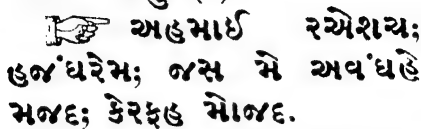 ☞ અહમાઈ રએશચ;
હજંઘરેમ; જસ મે અવંઘહે
મજદ; કેરફહ મોજદ.